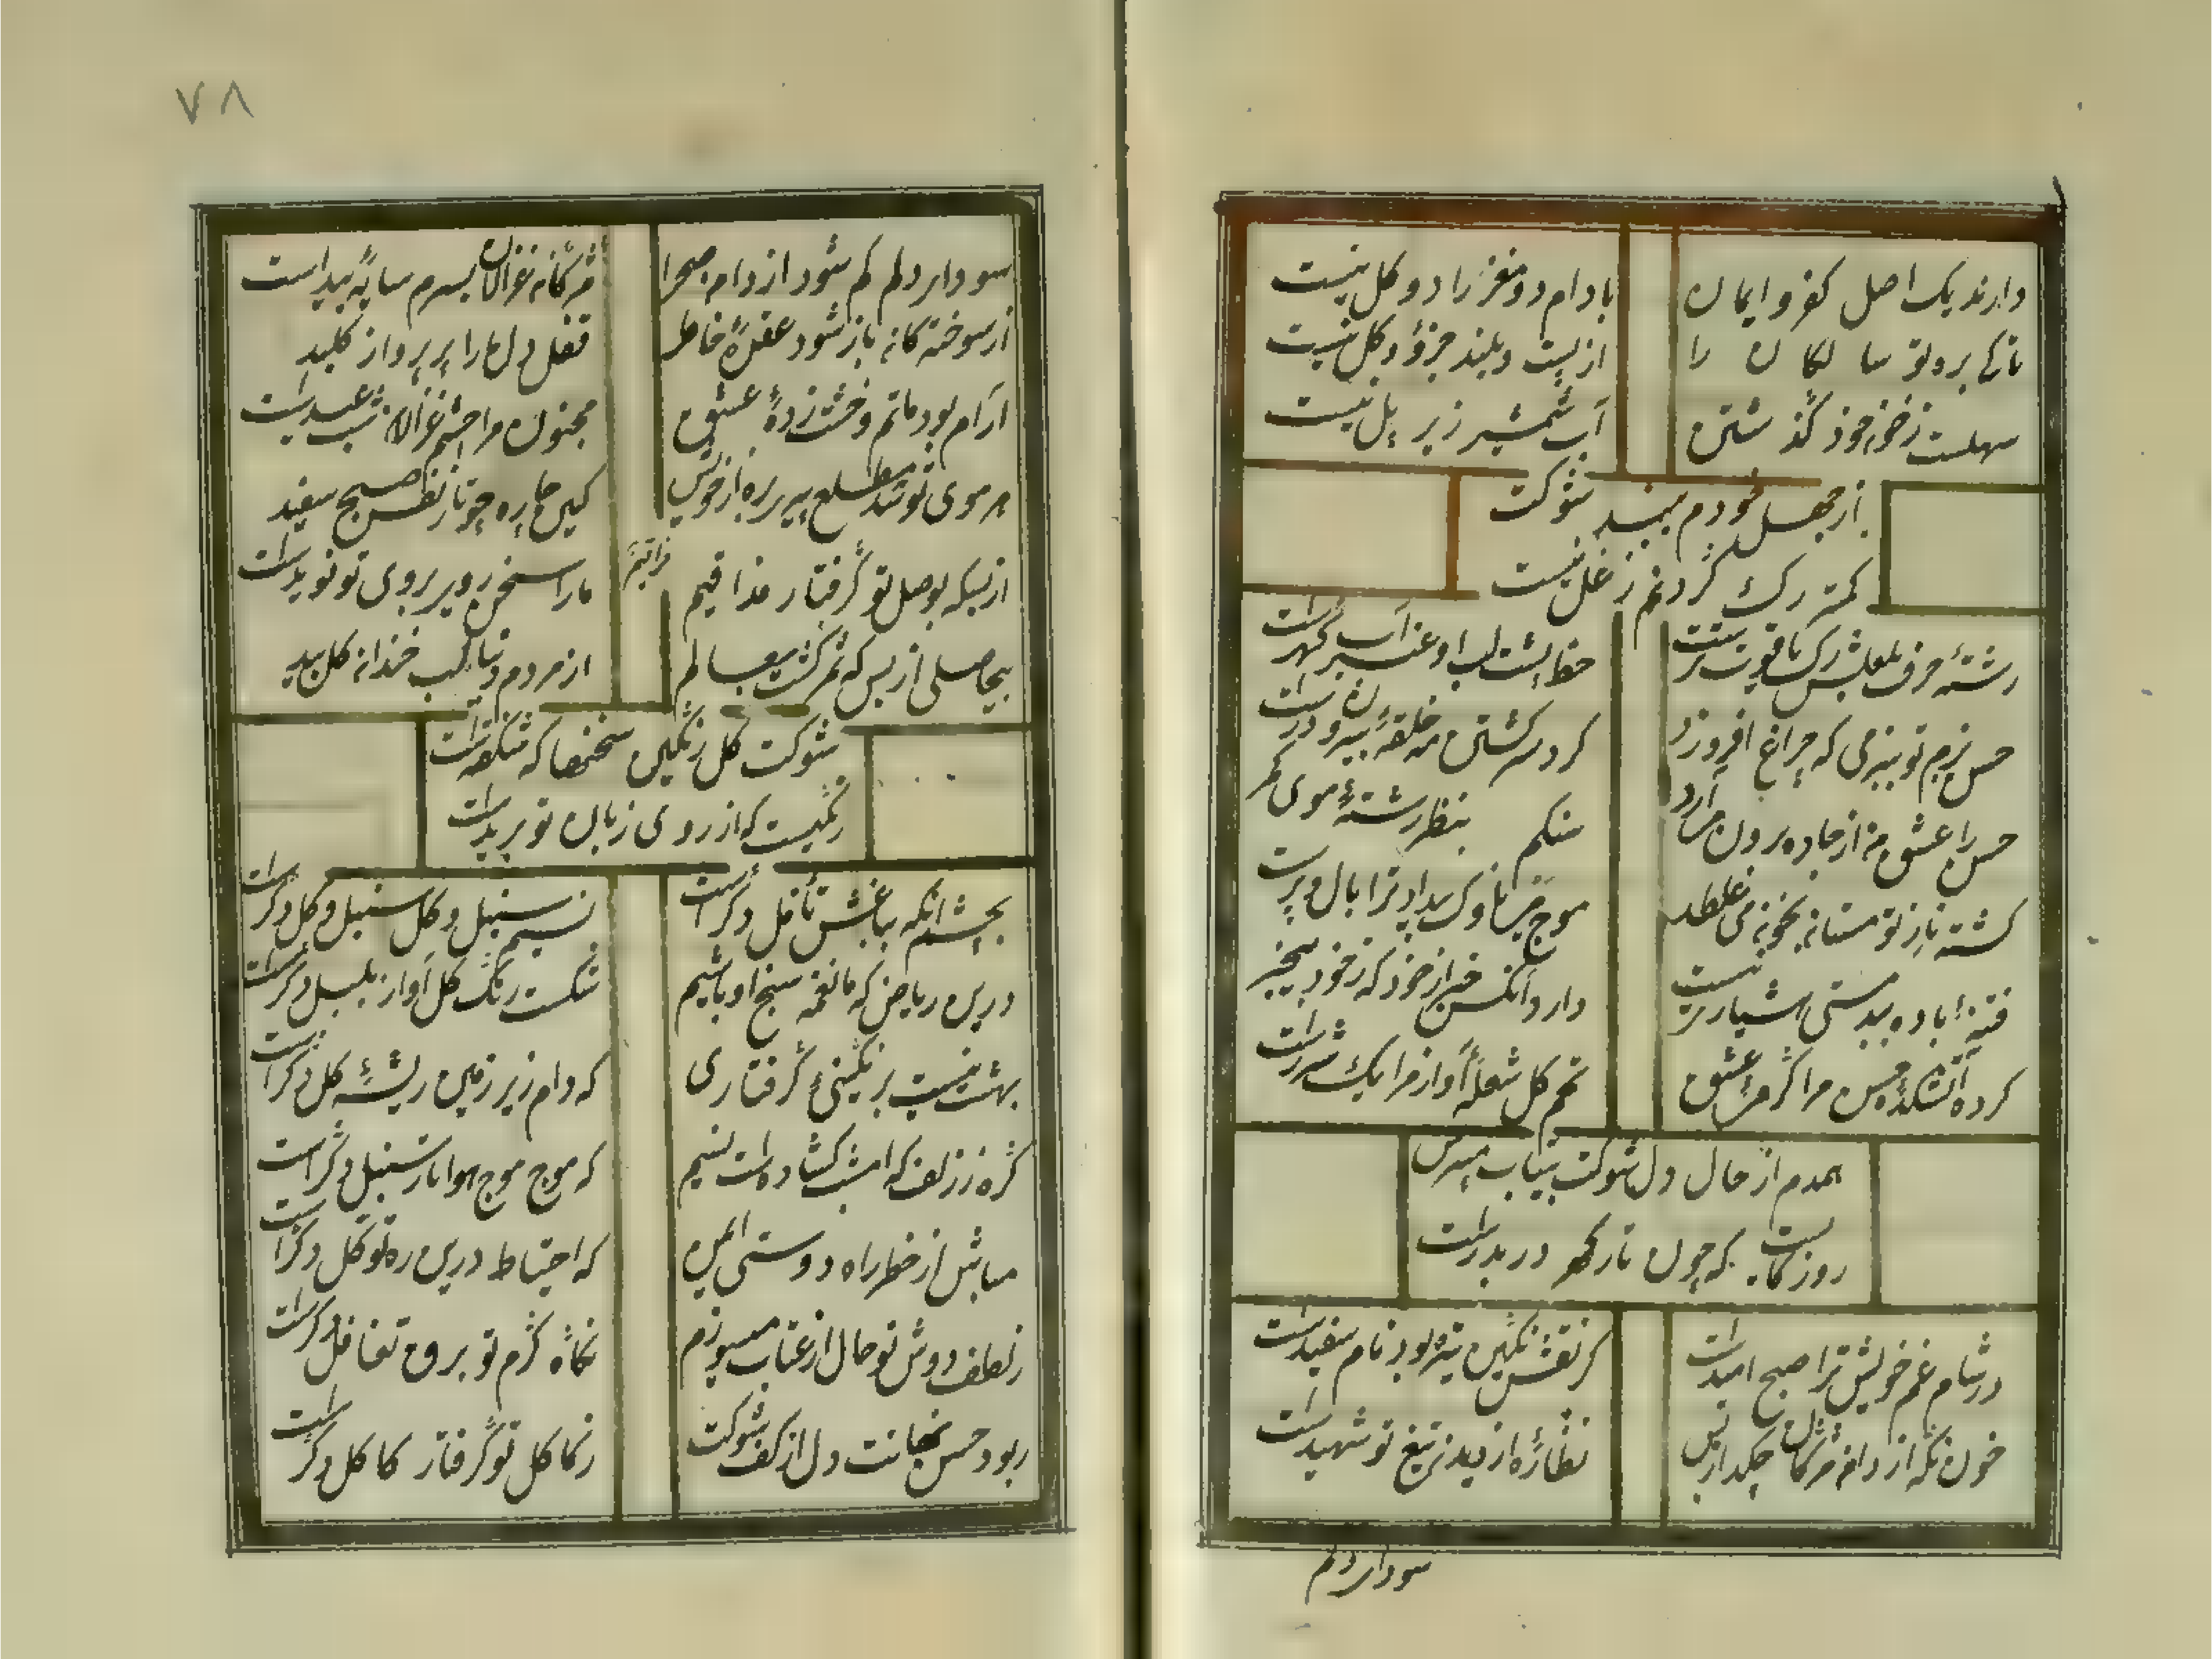 دارند یک اصل کفر و ایمان
بادام دو مغز را دو کل نیست
تا کی بره تو سالکان را
از پست و بلند جزو و کل نیست
سهلست ز خون خود گذشتن
آب شمشیر زیر پل نیست
از جهل خودم مبند شوکت
کمتر رک کردنم ز غل نیست
رشتهٔ حرف لعلش رک یاقوت ترست
خط پشت لب او عنبر آب کهرست
حسن بزم تو ببزمی که چراغ افروزد
کرد سر کشتن مه حلقهٔ بیرون درست
حسن را عشق من از جاده برون می‌آرد
بنظر رشتهٔ موی کمر
کشته ناز تو مستانه بخون می‌غلطد
موج می ناوک بیداد ترا بال و پرست
فتنه را باده بدمستی هشیاریست
دارد آنکس خبر از خود که ز خود بیخبر
کرده آتشکدهٔ حسن مرا کرمی عشق
تخم کل شعلهٔ آواز مرا یک شررست
همدم از حال دل شوکت بیتاب مپرس
روزکاریست که چون تار کهر در بدرست
در شام غم خویش ترا صبح امیدست
کر نقش نکین تیره بود نام سفیدست
خون نکه از دامن مژکان چکد از بس
نظاره از دیدن تیغ تو شهیدست
سودای دلم
۷۸
سودای دلم کم شود از دامن صحرا
مژکان غزالان بسرم سایهٔ بیداست
از سوختکان باز شود عقدهٔ خاطر
قفل دل ما را پر پرواز کلید
آرام بود ماتم وحشت زدهٔ عشق
مجنون مرا چشم غزالان شب عیدست
هر موی تو شد مطلع پیری بره از خویش
کین جاده چو تار نفس صبح سفید
از بسکه بوصل تو کرفتار مذاقیم
ما را سخن روبروی تو نویدست
بیحاصلی از بس که ثمر کشت بعالم
از مردم دنیا لب خندان کل بید
شوکت کل رنکین سخنها که شکفتست
رنکیست که از روی زبان تو پریدست
بچشم آنکه بباغش تأمل دکرست
نسیم سنبل و کل سنبل و کل دکرست
درین ریاض که ما نغمه سنج او باشیم
شکست رنک کل آواز بلبل دکرست
بهشت نیست برنکینی کرفتاری
که دام زیر زمین ریشهٔ کل دکرست
کره ز زلف که امشب کشاده است نسیم
که موج موج هوا تار سنبل دکر است
مباش از خطر راه دوستی ایمن
که احتیاط درین ره توکل دکرست
ز لطف دوش تو حال از عتاب میسوزم
نکاه کرم تو برق تغافل دکرست
ربود حسن نهانت دل از کف شوکت
ز کاکل تو کرفتار کاکل دکرست